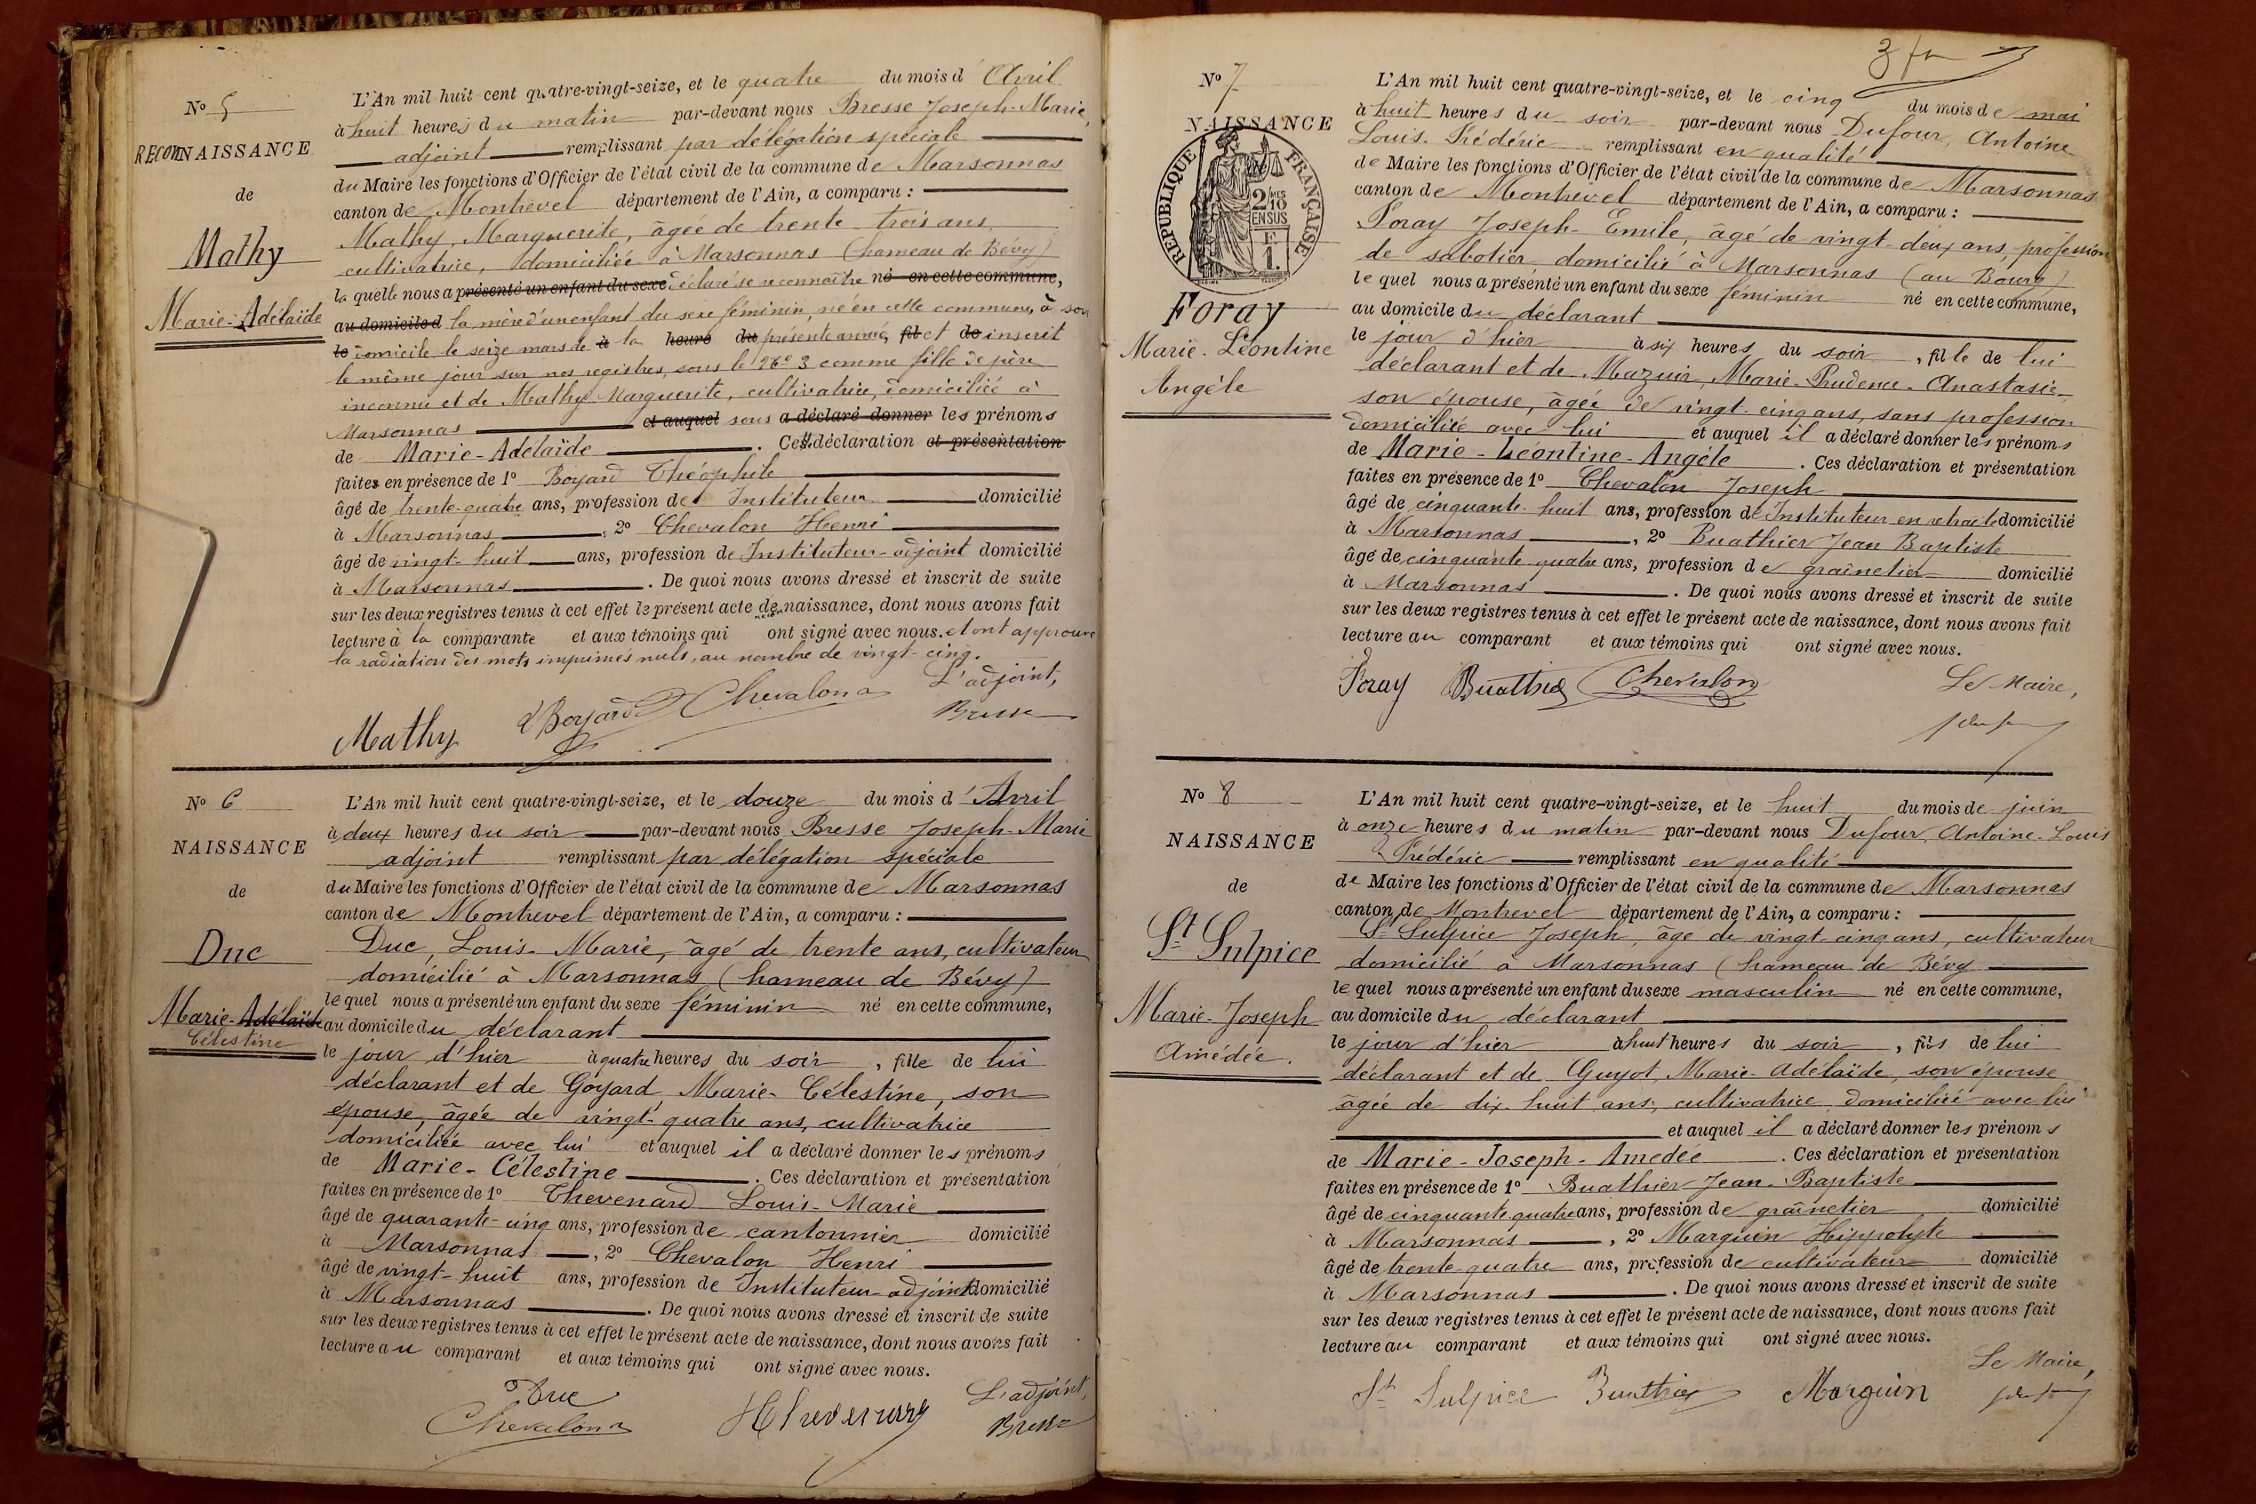 N° 5
RECONNAISSANCE
de
Mathy
Marie-Adélaïde
L'An mil huit cent quatre-vingt-seize, et le quatre du mois d'Avril
à huit heures du matin par-devant nous Bresse Joseph-Marie,
adjoint remplissant par délégation spéciale
du Maire les fonctions d'Officier de l'état civil de la commune de Marsonnas
canton de Montrevel département de l'Ain, a comparu :
Mathy, Marguerite, âgée de trente-trois ans,
cultivatrice, domiciliée à Marsonnas (hameau de Bévy)
laquelle nous a présenté un enfant du sexe déclaré se reconnaître né en cette commune,
au domicile d la mère d'un enfant du sexe féminin, né en cette commune, à son
le domicile le seize mars de à la heure du présente année, fil et de inscrit
le même jour sur nos registres, sous le N° 3 comme fille de père
inconnu et de Mathy Marguerite, cultivatrice, domiciliée à
Marsonnas et auquel sous a déclaré donner les prénoms
de Marie-Adélaïde. Cette déclaration et présentation
faites en présence de 1° Boyard Théophile
âgé de trente-quatre ans, profession de Instituteur domicilié
à Marsonnas, 2° Chevalon Henri
âgé de vingt-huit ans, profession de Instituteur-adjoint domicilié
à Marsonnas. De quoi nous avons dressé et inscrit de suite
sur les deux registres tenus à cet effet le présent acte de naissance, dont nous avons fait
lecture à la comparante et aux témoins qui ont signé avec nous. et ont approuvé
la radiation des mots imprimés nuls, au nombre de vingt-cinq.
L'adjoint,
Mathy Boyard Chevalon Bresse
N° 6
NAISSANCE
de
Duc
Marie-Adélaïde
Célestine
L'An mil huit cent quatre-vingt-seize, et le douze du mois d'Avril
à deux heures du soir par-devant nous Bresse Joseph-Marie
adjoint remplissant par délégation spéciale
du Maire les fonctions d'Officier de l'état civil de la commune de Marsonnas
canton de Montrevel département de l'Ain, a comparu :
Duc, Louis-Marie, âgé de trente ans, cultivateur
domicilié à Marsonnas (hameau de Bévy)
lequel nous a présenté un enfant du sexe féminin né en cette commune,
au domicile du déclarant
le jour d'hier à quatre heures du soir, fille de lui
déclarant et de Goyard Marie-Célestine, son
épouse, âgée de vingt-quatre ans, cultivatrice
domiciliée avec lui et auquel il a déclaré donner les prénoms
de Marie-Célestine. Ces déclaration et présentation
faites en présence de 1° Thevenard Louis-Marie
âgé de quarante-cinq ans, profession de cantonnier domicilié
à Marsonnas, 2° Chevalon Henri
âgé de vingt-huit ans, profession de Instituteur-adjoint domicilié
à Marsonnas. De quoi nous avons dressé et inscrit de suite
sur les deux registres tenus à cet effet le présent acte de naissance, dont nous avons fait
lecture au comparant et aux témoins qui ont signé avec nous.
Duc L'adjoint,
Chevalon Thevenard Bresse
N° 7
NAISSANCE
RÉPUBLIQUE FRANÇAISE
2/10 EN SUS
Foray
Marie-Léontine
Angèle
L'An mil huit cent quatre-vingt-seize, et le cinq du mois de mai
à huit heures du soir par-devant nous Dufour, Antoine
Louis-Frédéric remplissant en qualité
de Maire les fonctions d'Officier de l'état civil de la commune de Marsonnas
canton de Montrevel département de l'Ain, a comparu :
Foray Joseph-Emile, âgé de vingt-deux ans, profession
de sabotier domicilié à Marsonnas (au Bourg)
lequel nous a présenté un enfant du sexe féminin né en cette commune,
au domicile du déclarant
le jour d'hier à six heures du soir, fille de lui
déclarant et de Mazuir, Marie-Prudence-Anastasie
son épouse, âgée de vingt-cinq ans, sans profession
domiciliée avec lui et auquel il a déclaré donner les prénoms
de Marie-Léontine-Angèle. Ces déclaration et présentation
faites en présence de 1° Chevalon Joseph
âgé de cinquante-huit ans, profession de Instituteur en retraite domicilié
à Marsonnas, 2° Buathier Jean Baptiste
âgé de cinquante-quatre ans, profession de grainetier domicilié
à Marsonnas. De quoi nous avons dressé et inscrit de suite
sur les deux registres tenus à cet effet le présent acte de naissance, dont nous avons fait
lecture au comparant et aux témoins qui ont signé avec nous.
Foray Buathier Chevalon Le Maire,
N° 8
NAISSANCE
de
St Sulpice
Marie-Joseph
Amédée.
L'An mil huit cent quatre-vingt-seize, et le huit du mois de juin
à onze heures du matin par-devant nous Dufour, Antoine-Louis
Frédéric remplissant en qualité
de Maire les fonctions d'Officier de l'état civil de la commune de Marsonnas
canton de Montrevel département de l'Ain, a comparu :
St Sulpice Joseph, âgé de vingt-cinq ans, cultivateur
domicilié à Marsonnas (hameau de Bévy
lequel nous a présenté un enfant du sexe masculin né en cette commune,
au domicile du déclarant
le jour d'hier à huit heures du soir, fils de lui
déclarant et de Guyot, Marie-Adélaïde, son épouse
âgée de dix-huit ans, cultivatrice domiciliée avec lui
et auquel il a déclaré donner les prénoms
de Marie-Joseph-Amédée. Ces déclaration et présentation
faites en présence de 1° Buathier Jean-Baptiste
âgé de cinquante-quatre ans, profession de grainetier domicilié
à Marsonnas, 2° Marguin Hippolyte
âgé de trente-quatre ans, profession de cultivateur domicilié
à Marsonnas. De quoi nous avons dressé et inscrit de suite
sur les deux registres tenus à cet effet le présent acte de naissance, dont nous avons fait
lecture au comparant et aux témoins qui ont signé avec nous.
Le Maire,
St Sulpice Buathier Marguin